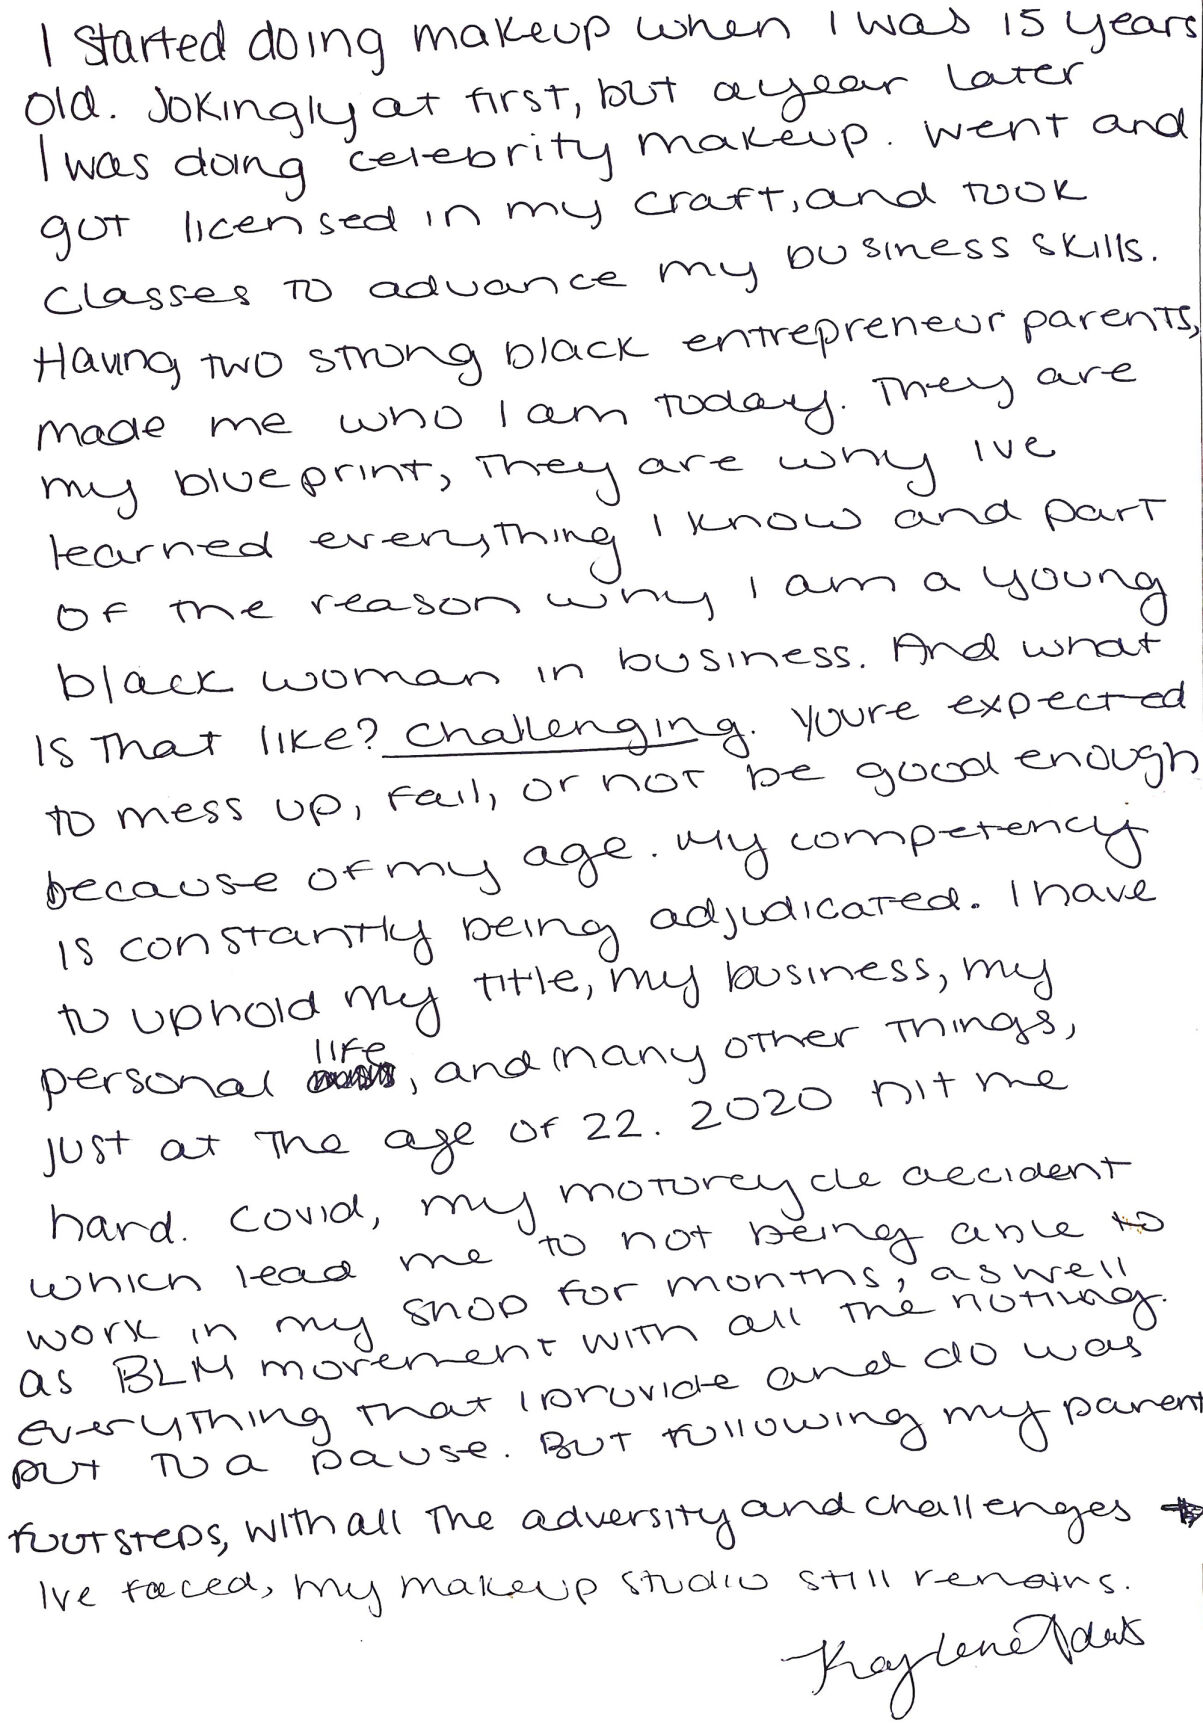 I started doing makeup when I was 15 years
old. Jokingly at first, but a year later
I was doing celebrity makeup. Went and
got licensed in my craft, and took
classes to advance my business skills.
Having two strong black entrepreneur parents,
made me who I am today. They are
my blueprint, they are why Ive
learned everything I know and part
of the reason why I am a young
black woman in business. And what
is that like? challenging. Youre expected
to mess up, fail, or not be good enough
because of my age. My competency
is constantly being adjudicated. I have
to uphold my title, my business, my
personal life, and many other things,
just at the age of 22. 2020 hit me
hard. Covid, my motorcycle accident
which lead me to not being able to
work in my shop for months, as well
as BLM movement with all the rioting.
Everything that I provide and do was
put to a pause. But following my parent
footsteps, with all the adversity and challenges
Ive faced, my makeup studio still remains.
Kaylene